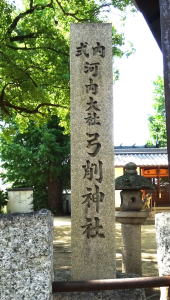 式内
河内大社
弓削神社